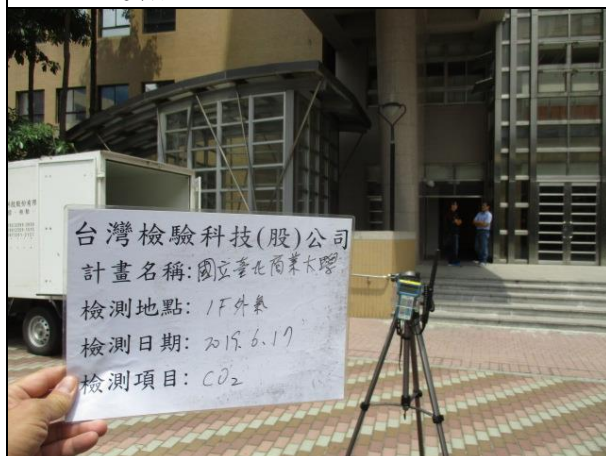 台灣檢驗科技(股)公司
計畫名稱:國立臺北商業大學
檢測地點: 1F外氣
檢測日期: 2019.6.17
檢測項目: CO2